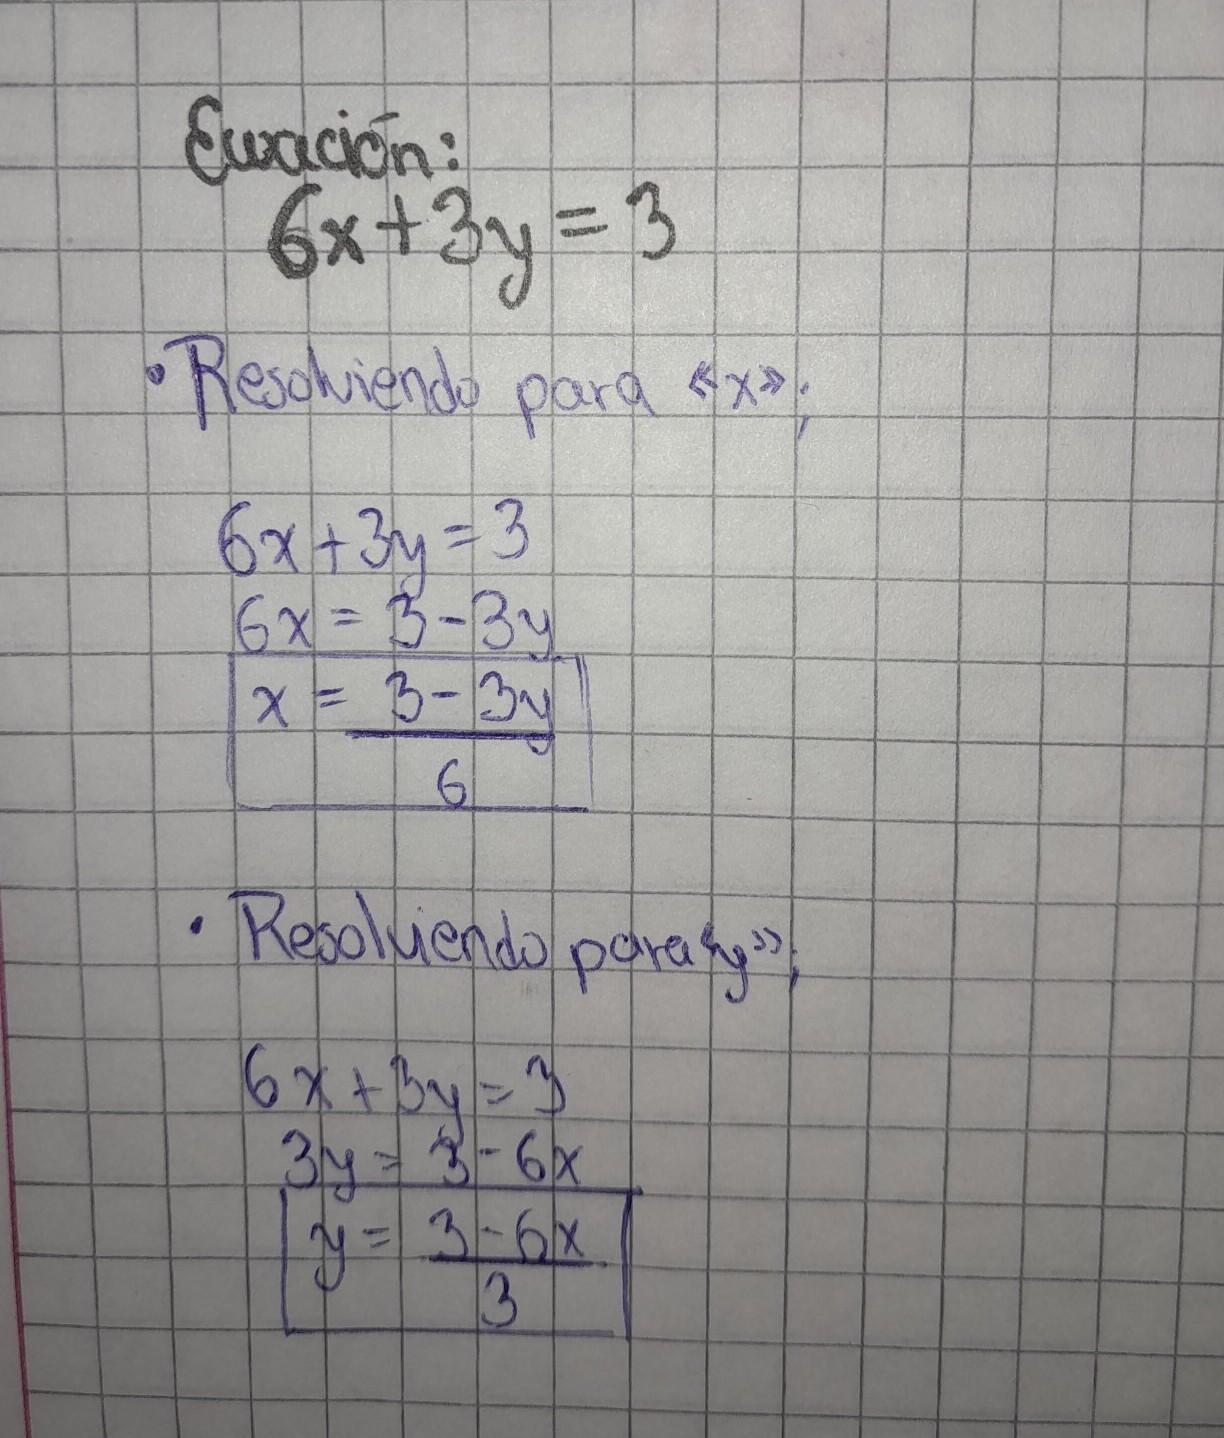 Ecuación:
6x + 3y = 3
• Resolviendo para «x»;
6x + 3y = 3
6x = 3 - 3y
x = 3 - 3y
6
• Resolviendo para «y»;
6x + 3y = 3
3y = 3 - 6x
y = 3 - 6x
3